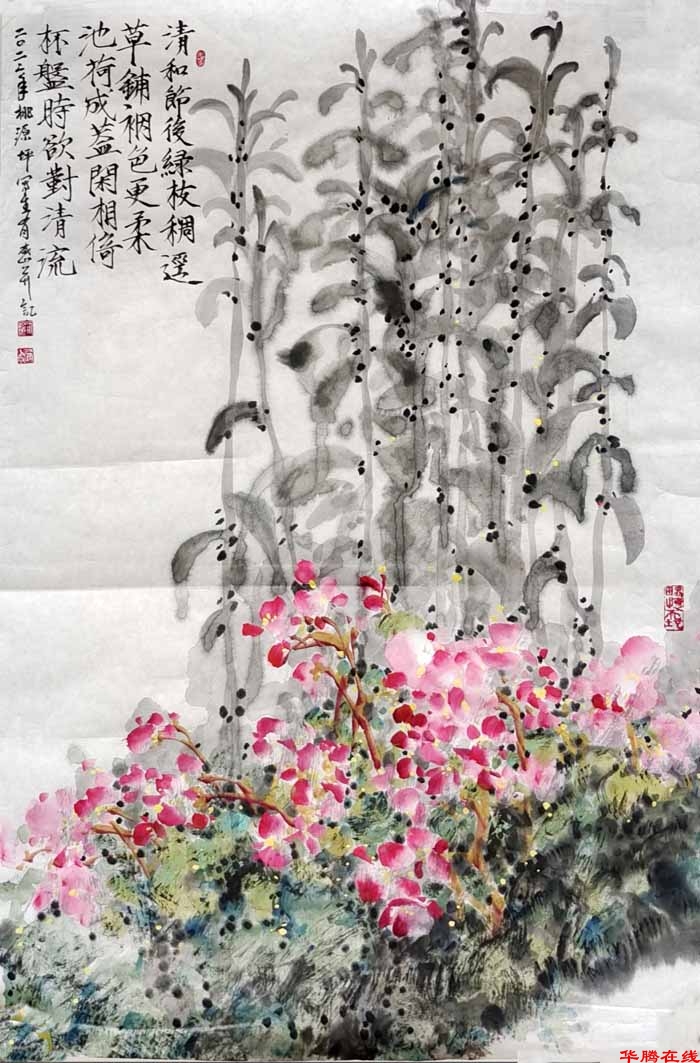 清和節後緑枝稠逕
草鋪裀色更柔
池荷成蓋閑相倚
杯盤時欲對清流
二〇二二年桃源坪写生并記
华腾在线